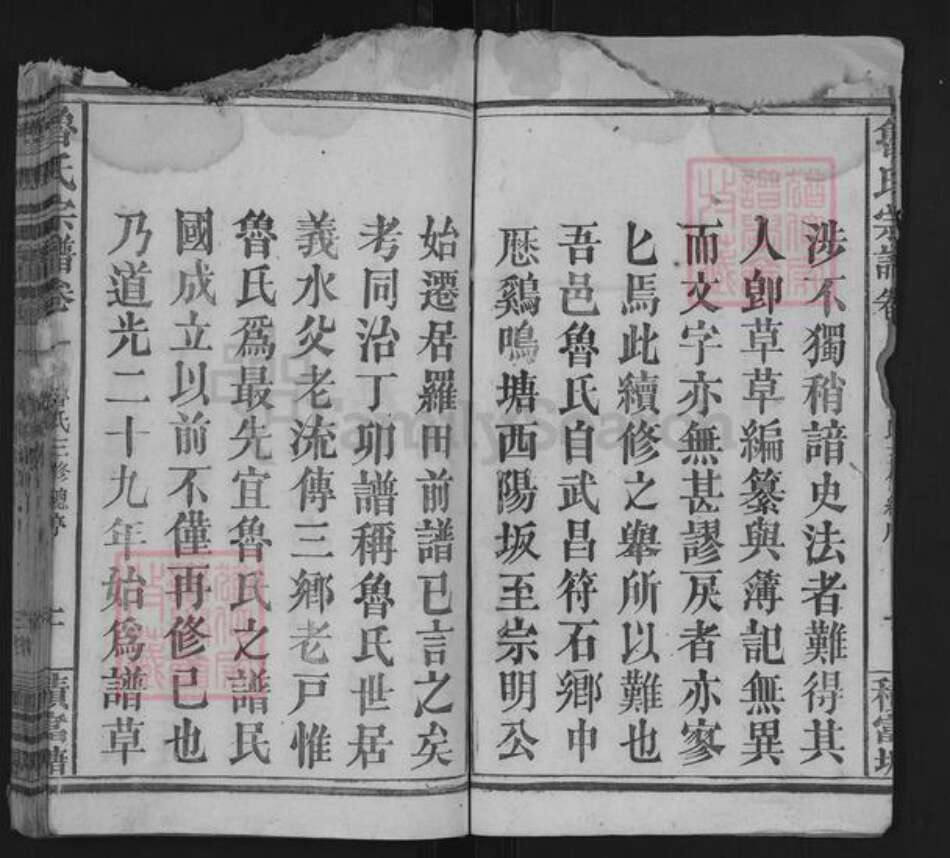 涉不獨稍諳史法者難得其
人卽草草編纂與簿記無異
而文字亦無甚謬戾者亦寥
匕焉此續修之舉所以難也
吾邑魯氏自武昌符石鄉中
歷鷄鳴塘西陽坂至宗明公
始遷居羅田前譜已言之矣
考同治丁卯譜稱魯氏世居
義水父老流傳三鄉老戸惟
魯氏爲最先宜魯氏之譜民
國成立以前不僅再修已也
乃道光二十九年始爲譜草
魯氏宗譜卷一
魯氏三修總序